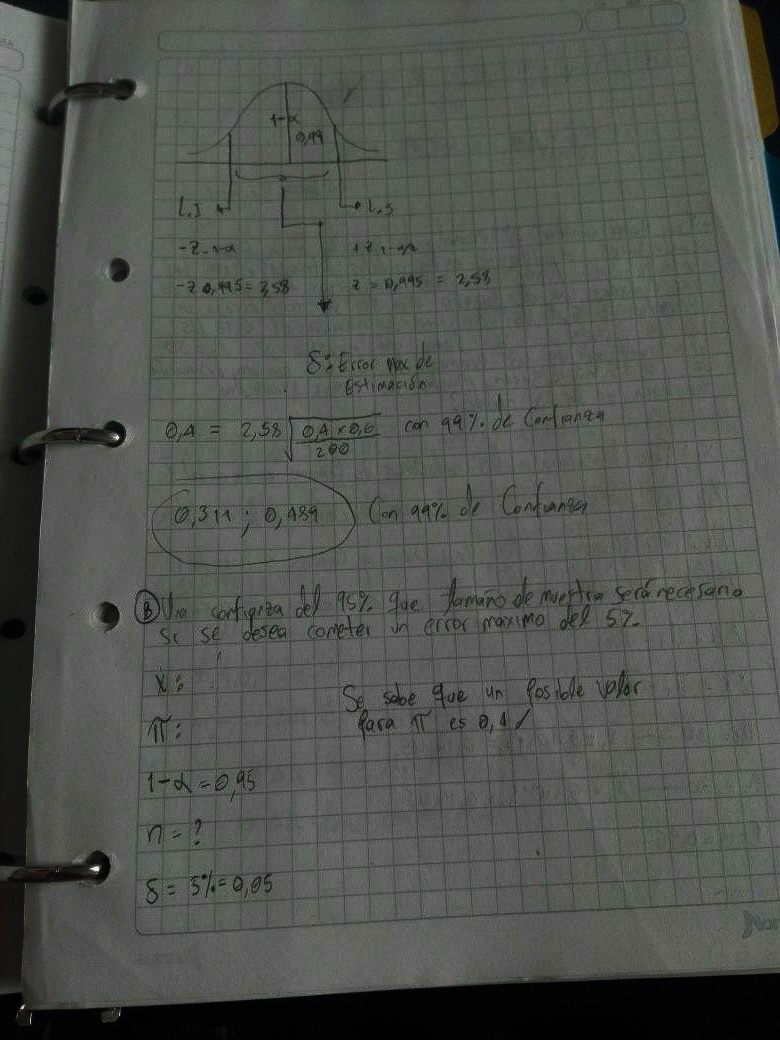 1-α
0,99
L.I
L.S
-Z 0,995 = 2,58
Z = 0,995 = 2,58
δ: Error max de
estimación
0,4 = 2,58 √ 0,4 x 0,6 / 200 con 99% de Confianza
0,311 ; 0,489 Con 99% de Confianza
B Una confianza del 95% que tamaño de muestra será necesario
si se desea cometer un error máximo del 5%.
X:
Se sabe que un posible valor
π:
para π es 0,4
1-α = 0,95
n = ?
δ = 5% = 0,05